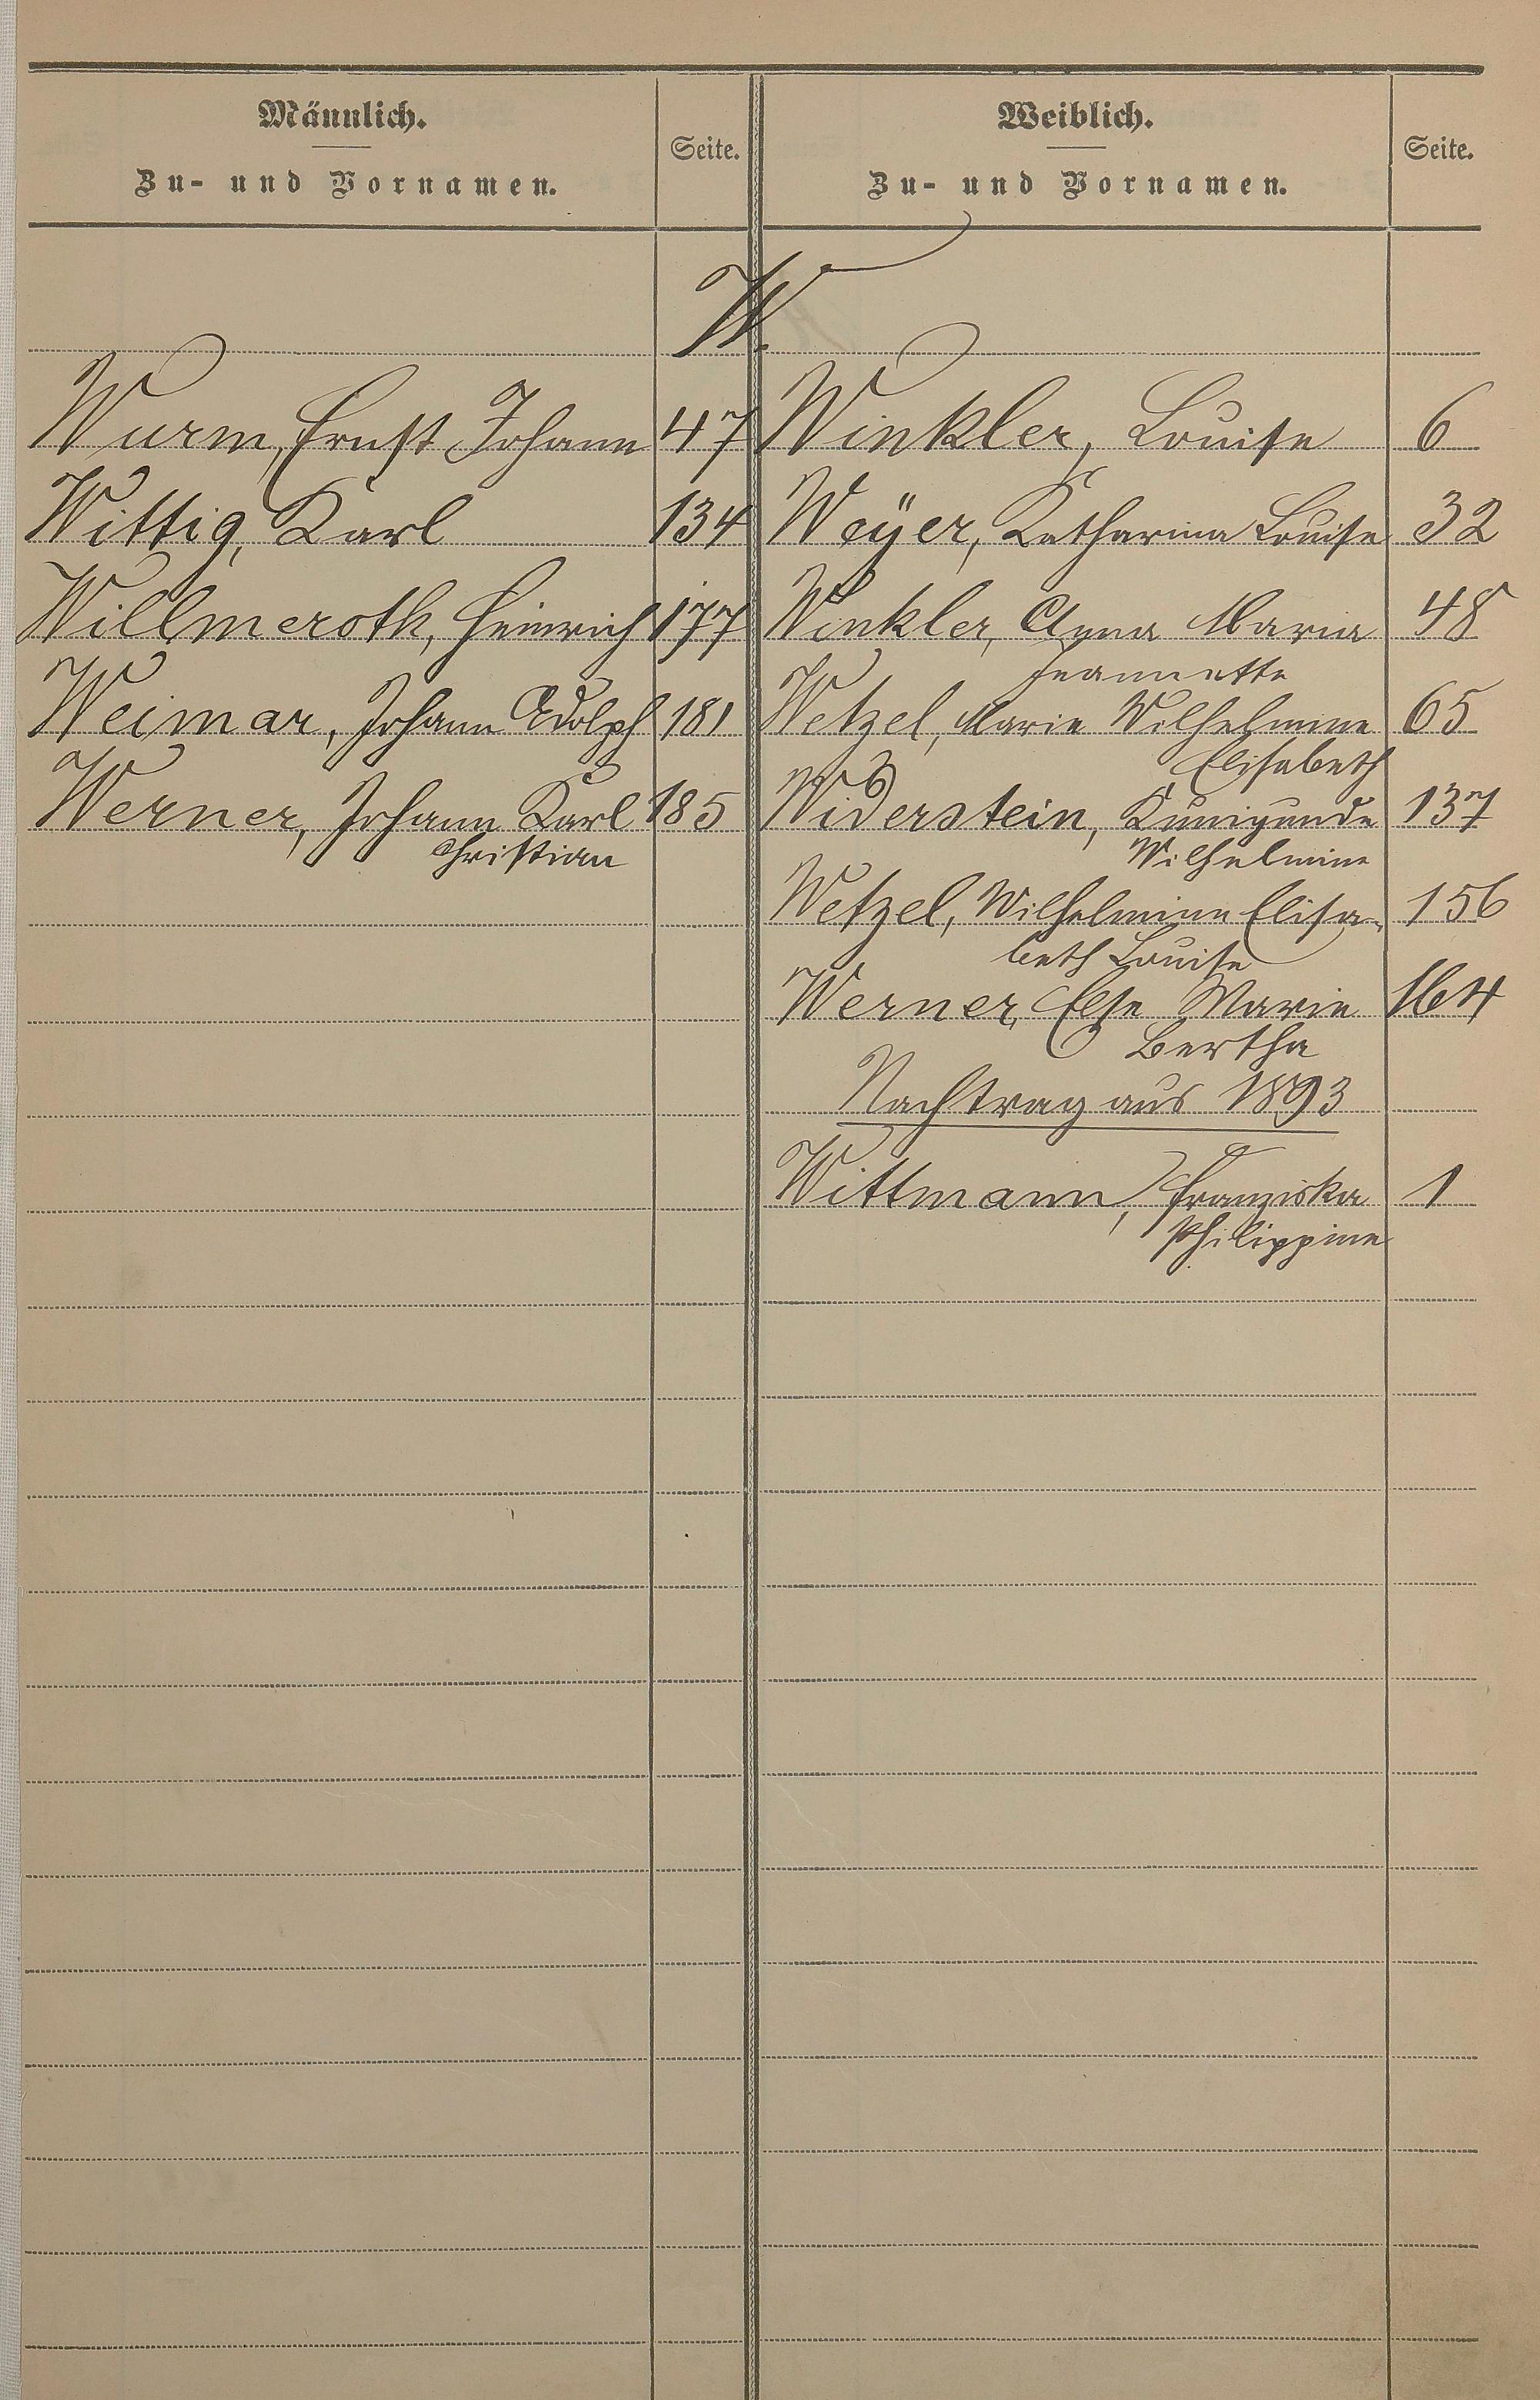 Männlich.
Zu- und Vornamen.
Seite.
Weiblich.
Zu- und Vornamen.
Seite.
W.
Wurm, Ernst Johann 47
Wittig, Karl 134
Willmeroth, Heinrich 177
Weimar, Johann Adolph 181
Werner, Johann Karl 185
Christian
Winkler, Louise 6
Weÿer, Katharina Louise 32
Winkler, Anna Maria 48
Jeannette
Wetzel, Marie Wilhelmine 65
Elisabeth
Widerstein, Kunigunde 137
Wilhelmine
Wetzel, Wilhelmine Elisa- 156
beth Louise
Werner, Else Marie 164
Bertha
Nachtrag aus 1893
Wittmann, Franziska 1
Philippine